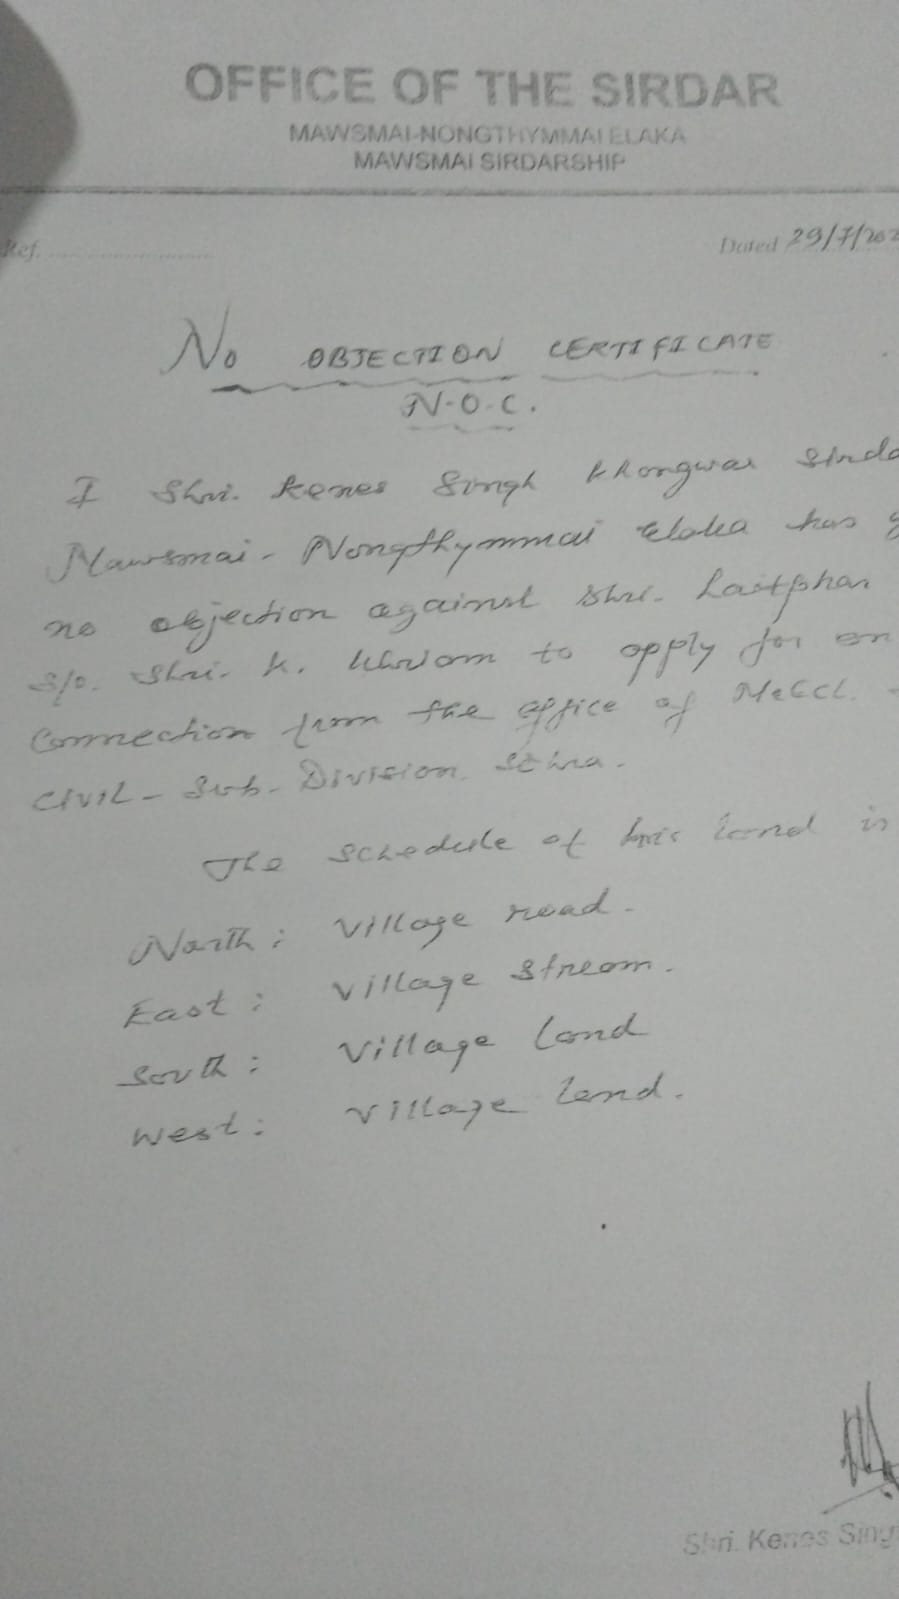 OFFICE OF THE SIRDAR
MAWSMAI-NONGTHYMMAI ELAKA
MAWSMAI SIRDARSHIP
Ref. ..............................
Dated 29/7/202
No OBJECTION CERTIFICATE
N.O.C.
I Shri. Kenes Singh Khongwar
Mawsmai - Nongthymmai Elaka has
no objection against Shri. Laitphar
S/o. Shri. K. to apply for
Connection from the office of MeECL.
CIVIL - Sub - Division. Sohra.
The schedule of his land is
North: Village road.
East: Village stream.
South: Village land
West: Village land.
Shri. Kenes Sing